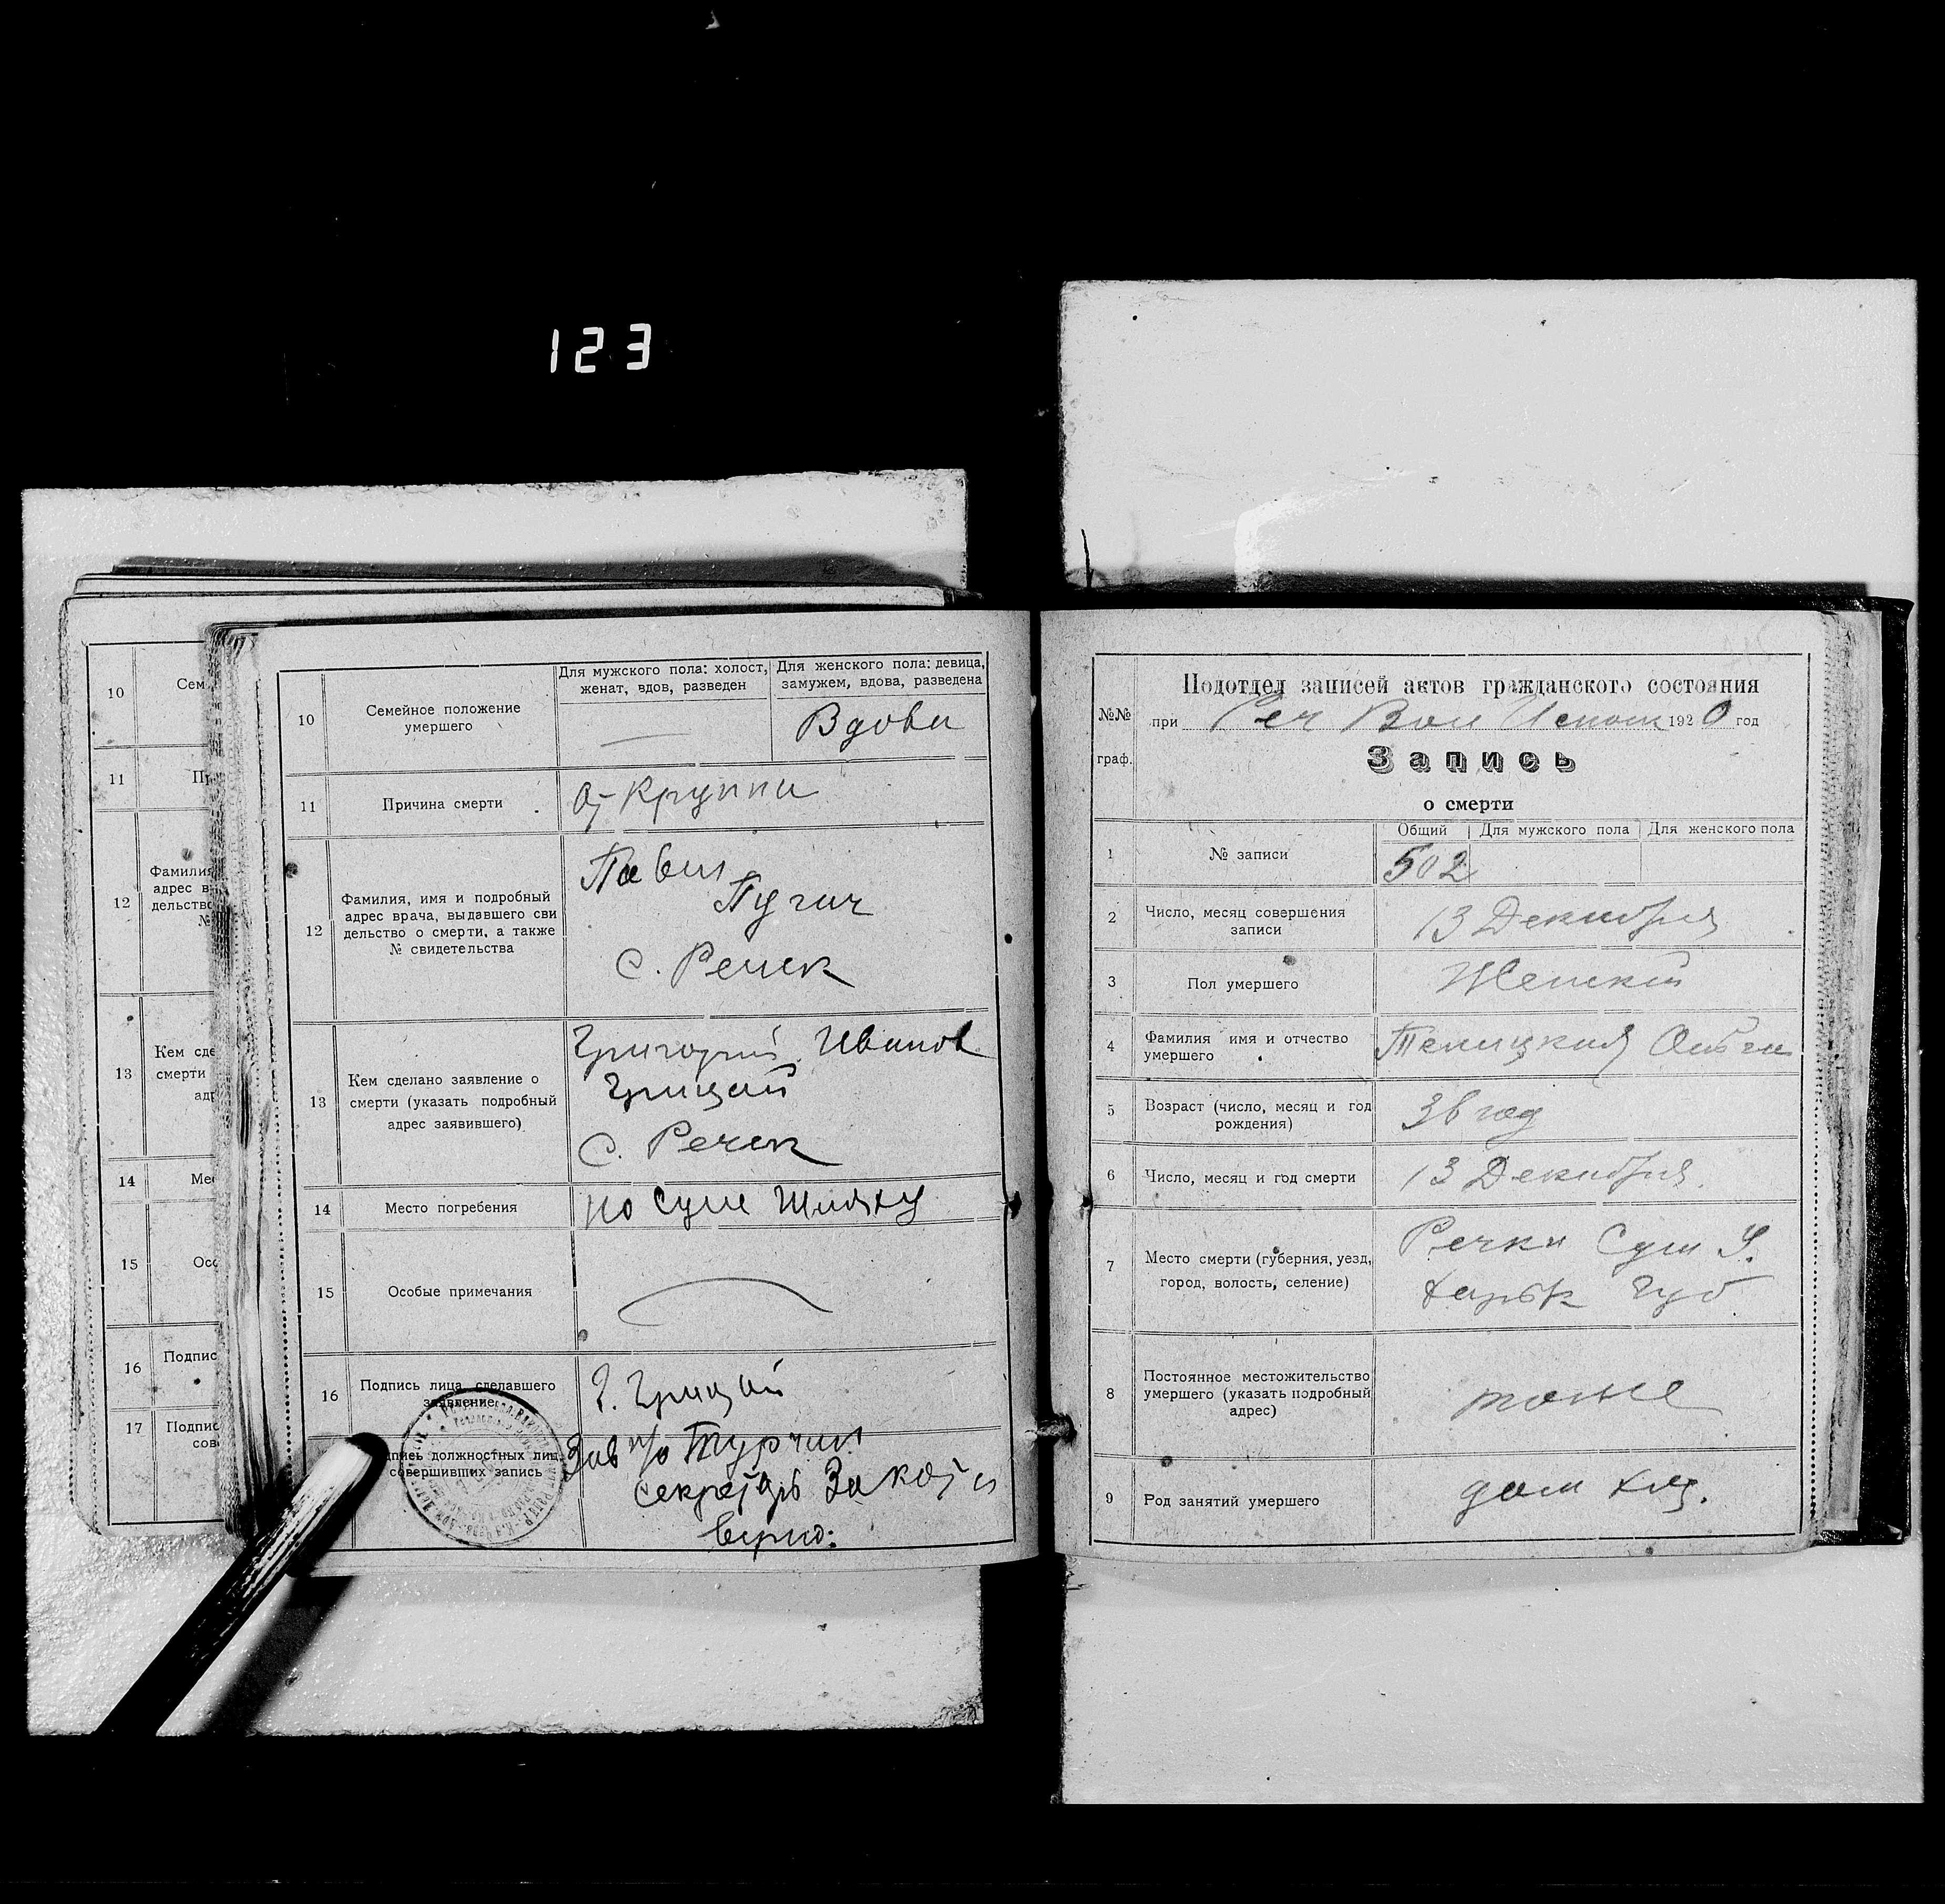 123
10
Сем
11
Пр
12
Фамилия
адрес в
дельство
№
13
Кем сде
смерти
адр
14
Мес
15
Осо
16
Подпис
17
Подпис
сов
10
Семейное положение
умершего
Для мужского пола: холост,
женат, вдов, разведен
Для женского пола: девица,
замужем, вдова, разведена
Вдова
11
Причина смерти
От
12
Фамилия, имя и подробный
адрес врача, выдавшего сви
дельство о смерти, а также
№ свидетельства
Павел
с. Речек
13
Кем сделано заявление о
смерти (указать подробный
адрес заявившего)
Григорий Иванов
Грицай
с. Речек
14
Место погребения
по Сум Шляху
15
Особые примечания
16
Подпись лица, сделавшего
заявление
Г. Грицай
пись должностных лиц,
совершивших запись
Зав п/о Турчин
секретарь
Верно:
№№
граф.
Подотдел записей актов гражданского состояния
при Реч Вол Исполк 1920 год
Запись
о смерти
Общий
Для мужского пола
Для женского пола
1
№ записи
502
2
Число, месяц совершения
записи
13 Декабря
3
Пол умершего
Женский
4
Фамилия имя и отчество
умершего
5
Возраст (число, месяц и год
рождения)
36 год
6
Число, месяц и год смерти
13 Декабря.
7
Место смерти (губерния, уезд,
город, волость, селение)
Речки Сум У.
Харьк Губ
8
Постоянное местожительство
умершего (указать подробный
адрес)
тоже
9
Род занятий умершего
дом хоз.